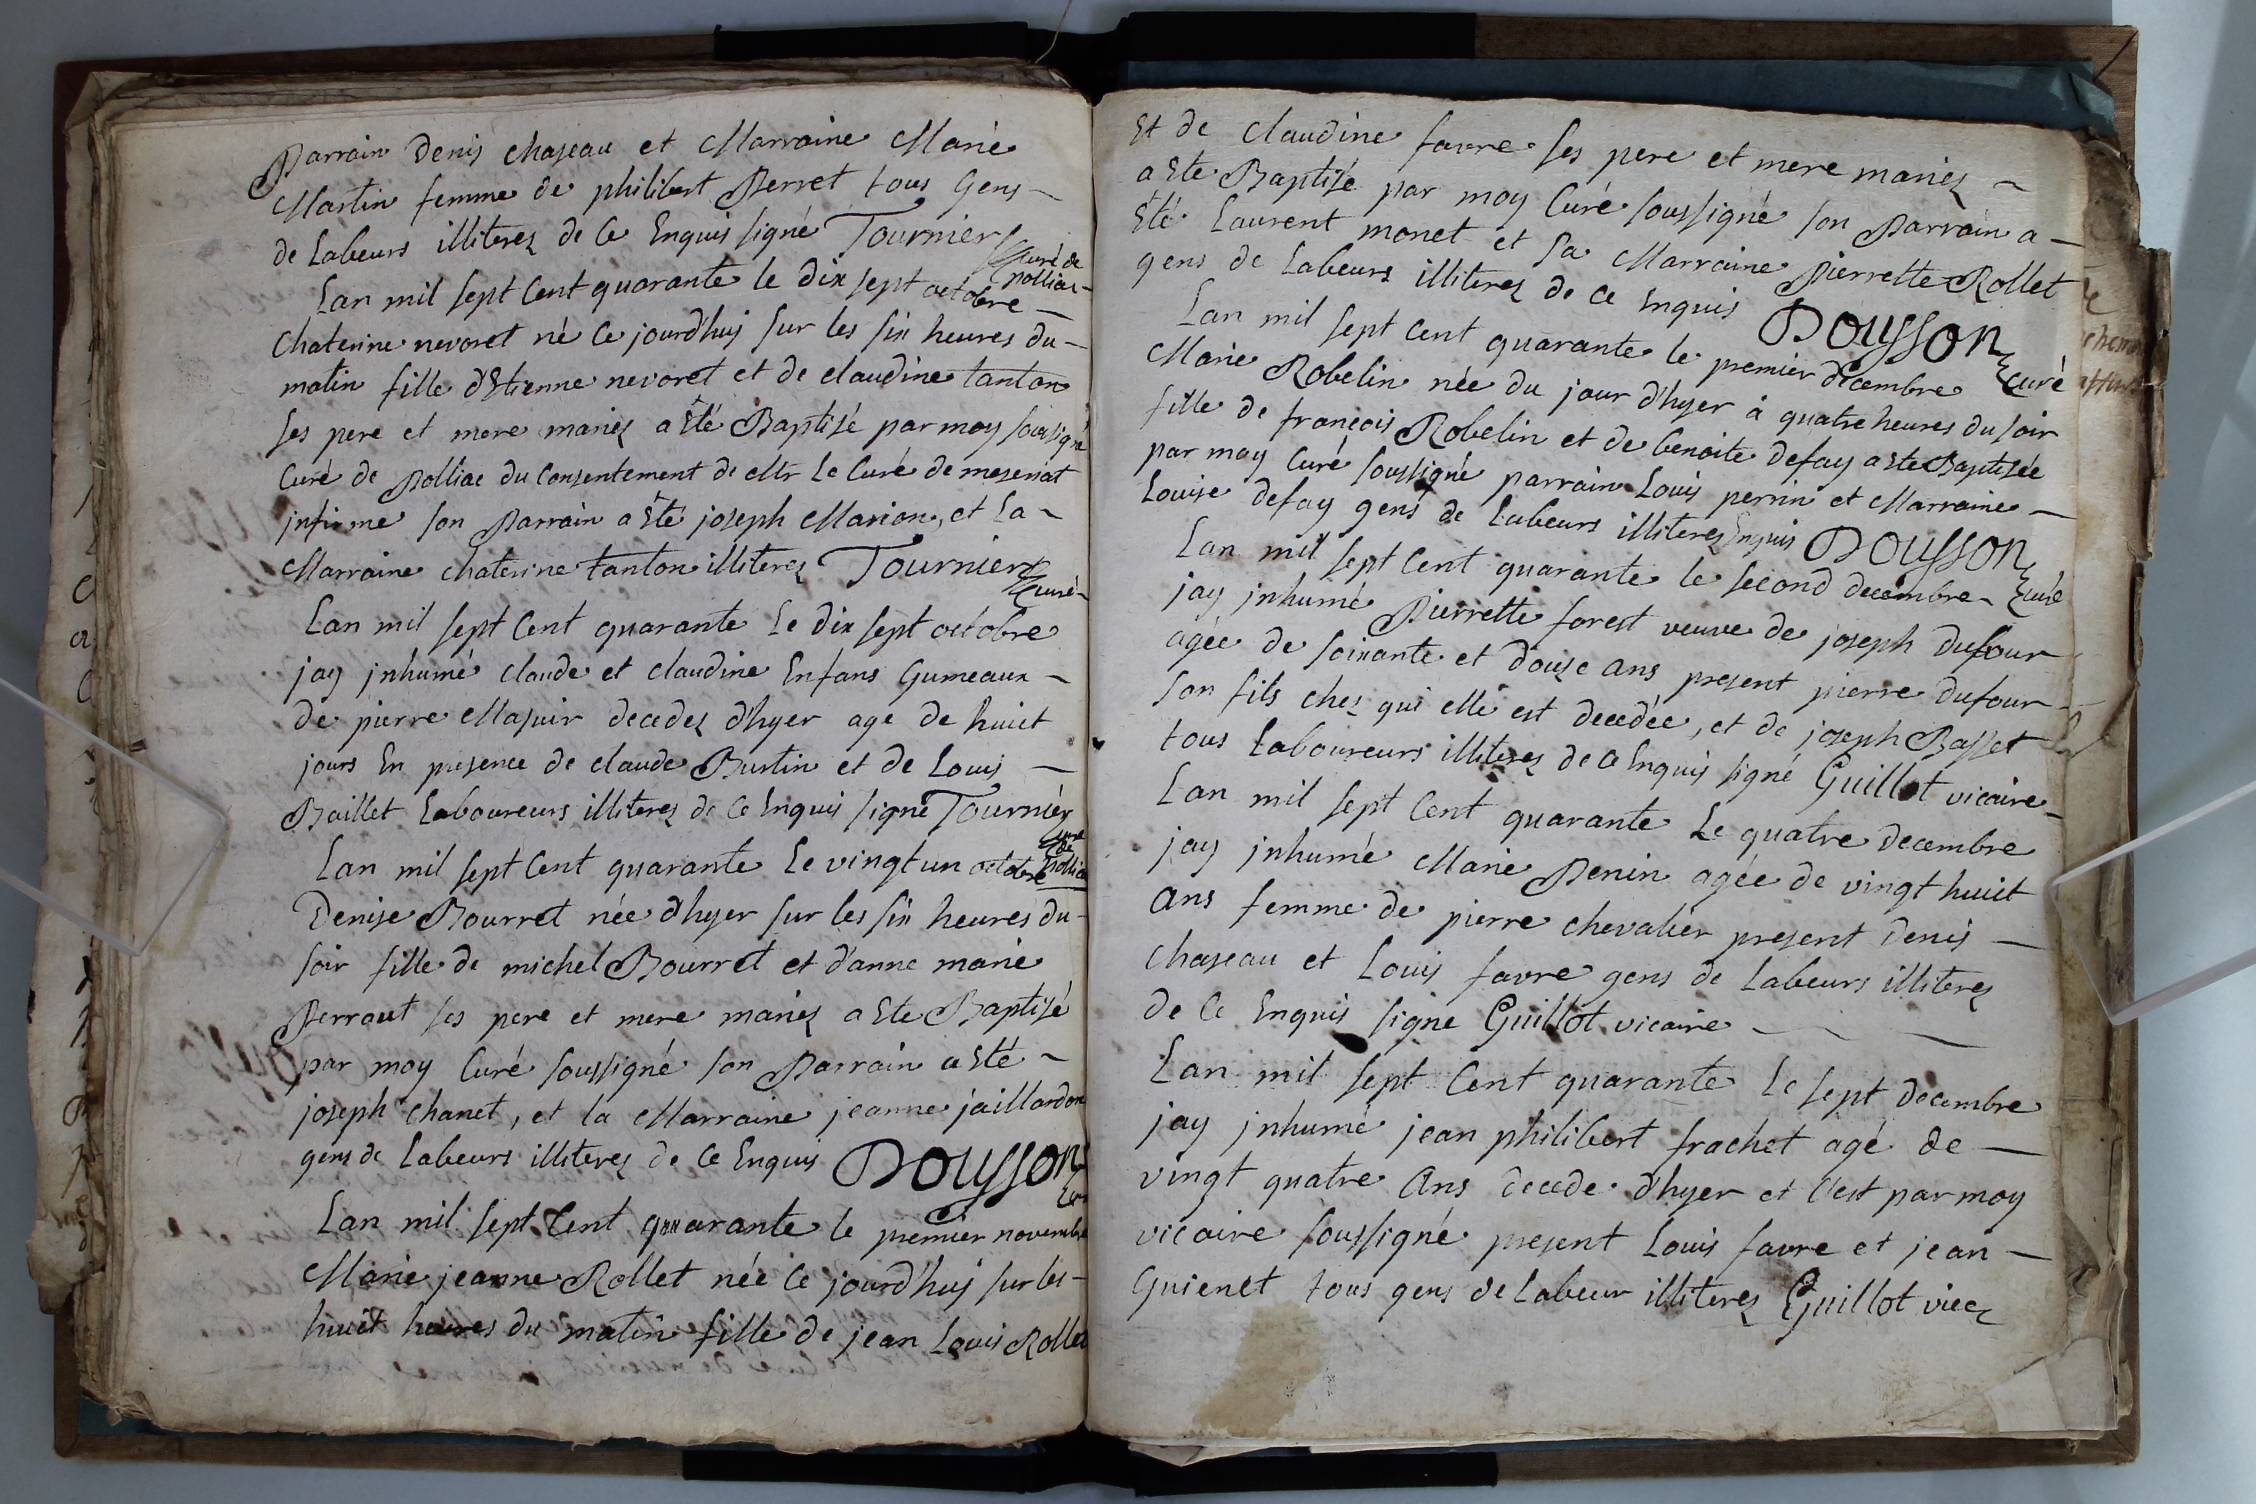 Parrain Denis chaseau et Marraine Marie
Martin femme de philibert Perret tous Gens
de Labeurs illiterez de Ce Enquis signé Tournier
Curé de polliac
Lan mil sept Cent quarante le dix sept octobre
Chaterine nevoret né Ce jourd'huy sur les six heures du
matin fille d'Etienne nevoret et de claudine tanton
ses pere et mere mariez a Eté Baptisé par moy soussigné
Curé de Polliac du Consentement de Mr Le Curé de meseriat
infirme son Parrain a Eté joseph Marion, et La
Marraine chaterine tanton illiterez Tournier
Curé
Lan mil sept Cent quarante Le dix sept octobre
jay jnhumé claude et claudine Enfans Gumeaux
de pierre Masuir decedez d'hyer age de huict
jours En presence de claude Burtin et de Louis
Baillet Laboureurs illiterez de Ce Enquis signé Tournier
Curé de Polliac
Lan mil sept Cent quarante Le vingt un octobre
Denise Bourret née d'hyer sur les six heures du
soir fille de michel Bourret et d'anne marie
Perraut ses pere et mere mariez a Ete Baptisé
par moy Curé soussigné son Parrain a Eté
joseph Chanet, et la Marraine jeanne jaillardon
gens de Labeurs illiterez de Ce Enquis Dousson
Lan mil sept Cent quarante le premier novembre
Marie jeanne Rollet née Ce jourd'huy sur les
huict heures du matin fille de jean Louis Rollet
Et de Claudine favre ses pere et mere mariez
a Ete Baptisé par moy Curé soussigné son Parrain a
Eté Laurent monet et Sa Marraine Pierrette Rollet
gens de Labeurs illiterez de ce Enquis Dousson
Curé
Lan mil sept Cent quarante le premier decembre
Marie Robelin née du jour d'hyer à quatre heures du soir
fille de françois Robelin et de benoite defay a Ete Baptisée
par moy Curé soussigné parrain Louis perrin et Marraine
Louise defay gens de Labeurs illiterez Enquis Dousson
Curé
Lan mil sept Cent quarante le second decembre
jay jnhumé Pierrette forest veuve de joseph dufour
agée de soixante et douze ans present pierre dufour
son fils chez qui elle est decedée, et de joseph Basset
tous Laboureurs illiterez de Ce Enquis signé Guillot vicaire
Lan mil sept Cent quarante Le quatre decembre
jay jnhumé Marie Penin agée de vingt huict
ans femme de pierre chevalier present Denis
chaseau et Louis favre gens de Labeurs illiterez
de Ce Enquis signe Guillot vicaire
Lan mil sept Cent quarante Le sept decembre
jay jnhumé jean philibert frachet agé de
vingt quatre Ans decede d'hyer et C'est par moy
vicaire soussigné present Louis favre et jean
Guienet tous gens de Labeur illiterez Guillot vicr